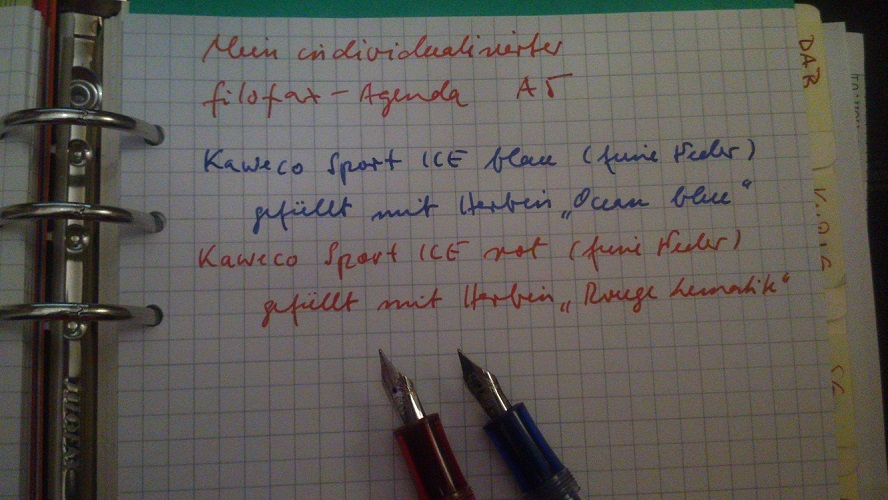 Mein individualisierter
filofax - Agenda A5
Kaweco Sport ICE blau (feine Feder)
gefüllt mit Herbin „Ocean blue“
Kaweco Sport ICE rot (feine Feder)
gefüllt mit Herbin „Rouge hematik“
DAR